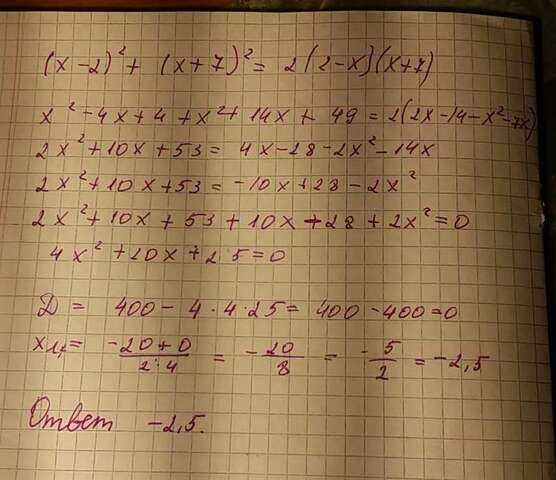 (x-2)² + (x+7)² = 2(2-x)(x+7)
x² - 4x + 4 + x² + 14x + 49 = 2(2x - 14 - x² - 7x)
2x² + 10x + 53 = 4x - 28 - 2x² - 14x
2x² + 10x + 53 = -10x + 28 - 2x²
2x² + 10x + 53 + 10x - 28 + 2x² = 0
4x² + 20x + 25 = 0
D = 400 - 4·4·25 = 400 - 400 = 0
x₁,₂ = (-20+0)/(2·4) = -20/8 = -5/2 = -2,5
Ответ -2,5.